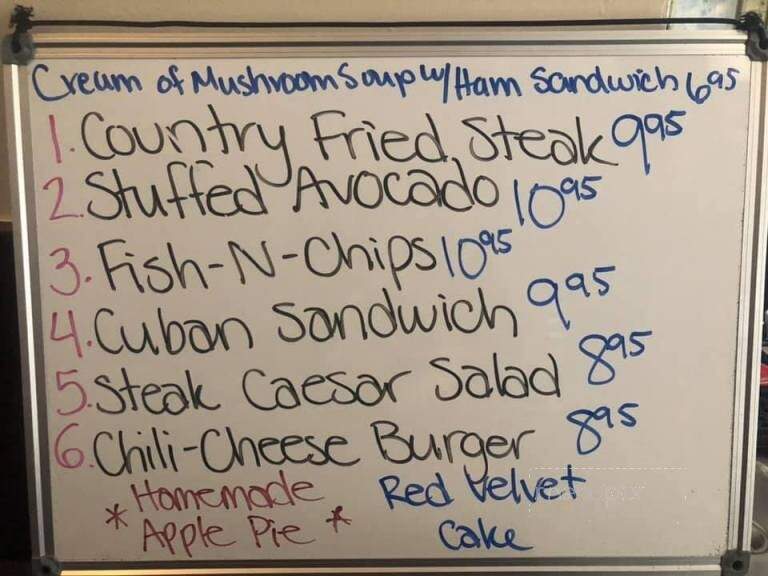 Cream of Mushroom Soup w/ Ham Sandwich 6 95
1. Country Fried Steak 9 95
2. Stuffed Avocado 10 95
3. Fish-N-Chips 10 95
4. Cuban Sandwich 9 95
5. Steak Caesar Salad 8 95
6. Chili-Cheese Burger 8 95
* Homemade Apple Pie *
Red Velvet Cake